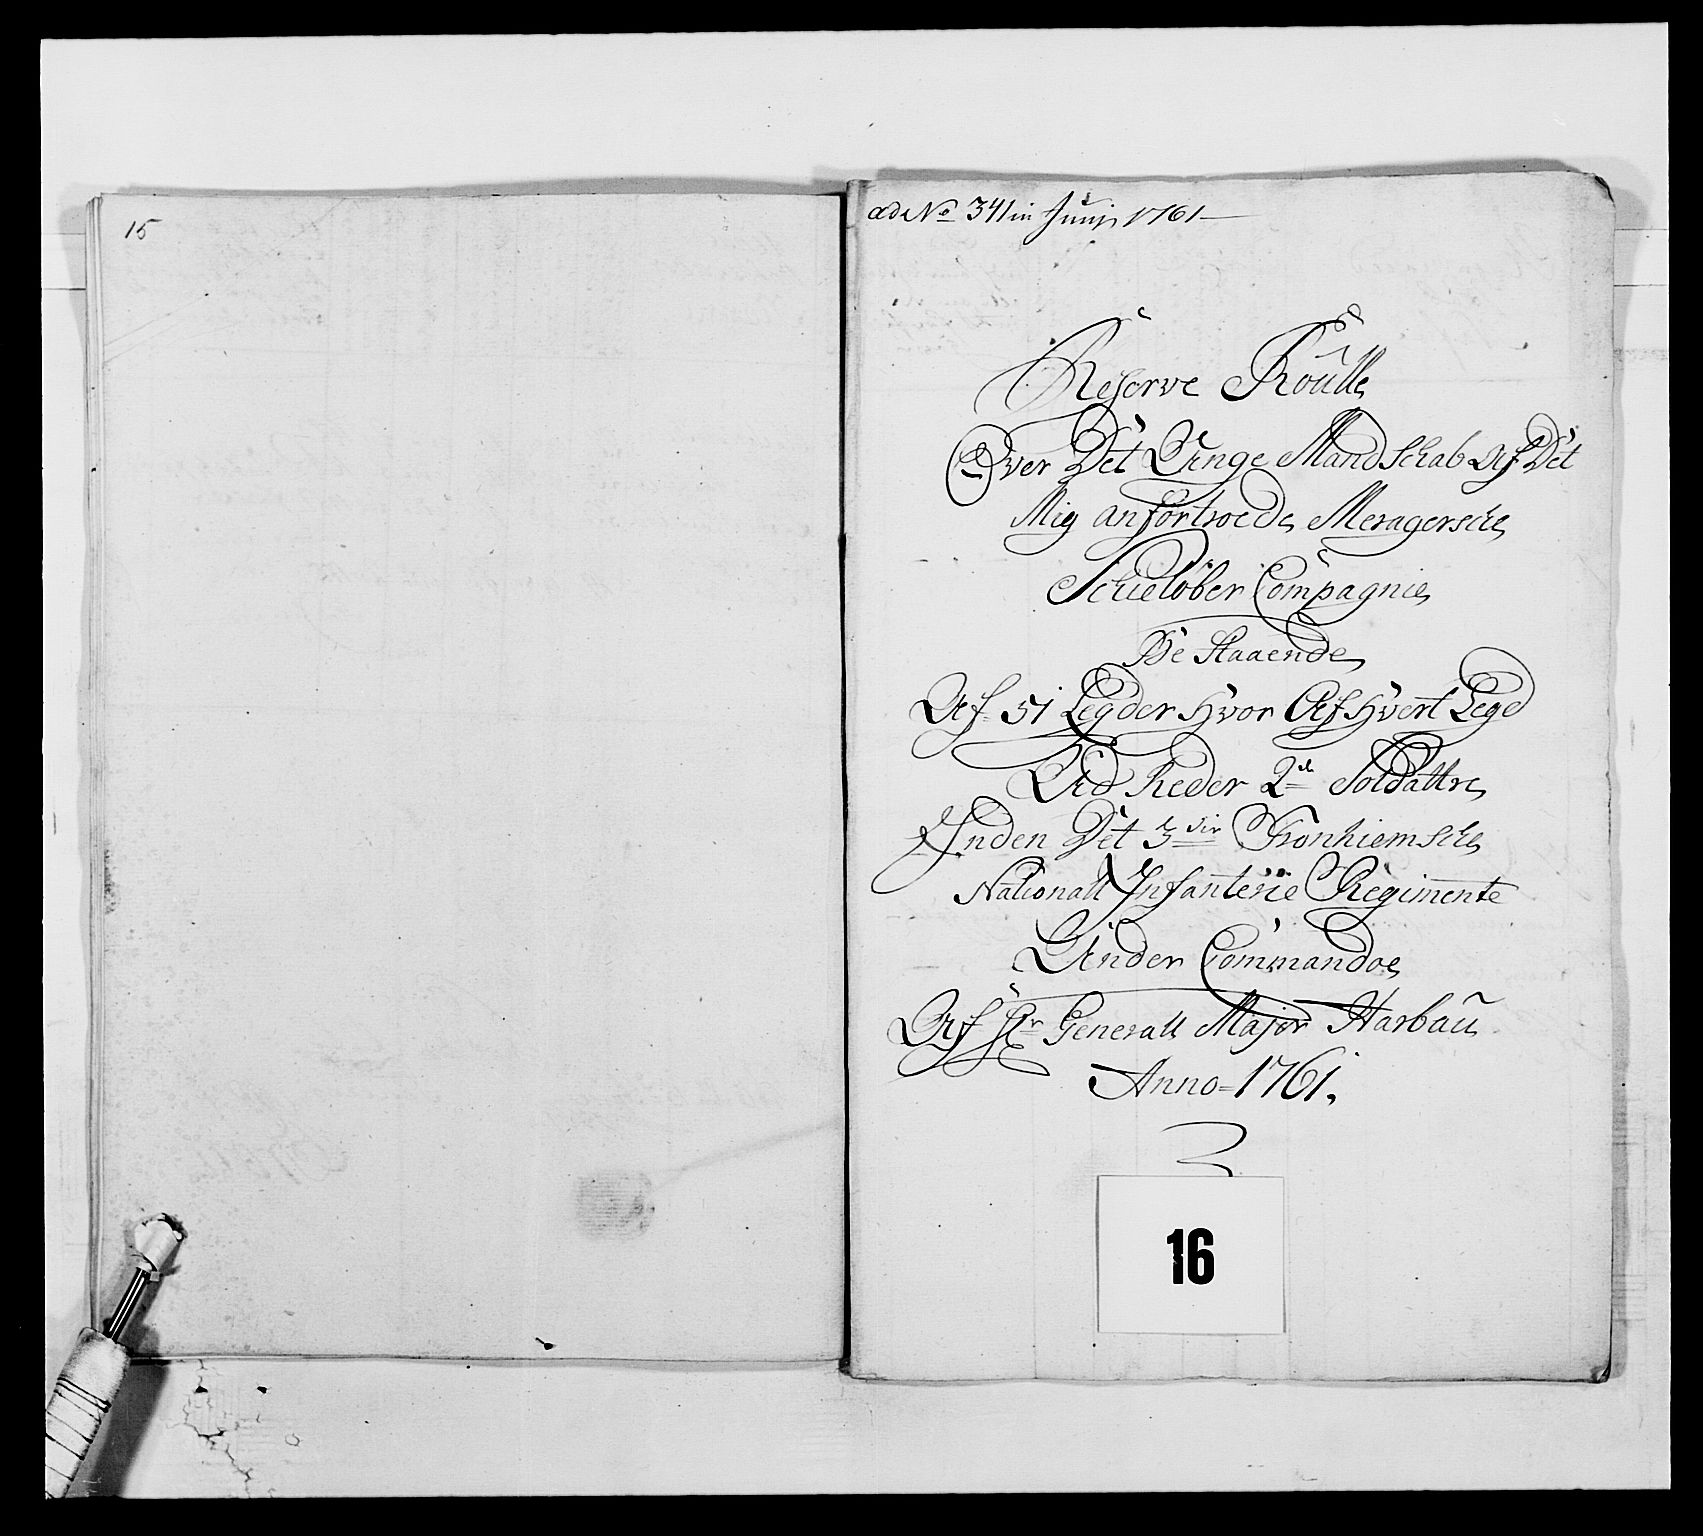 15
ad No 341 in Junj 1761
Reserve Roulle
Over Det Unge Mandschab Af Det
Mig anfortroede Meragersche
Schieløber Compagnie
Be Staaende
Af 51 Legder Hvor Af Hvert Legd
Ud Reder 2de Soldattre
Inden Det 3die Tronhiemsche
Nationall Infanterie Regimente
Under Commandoe
Af Hr Generall Major Harbaü
Anno 1761.
16